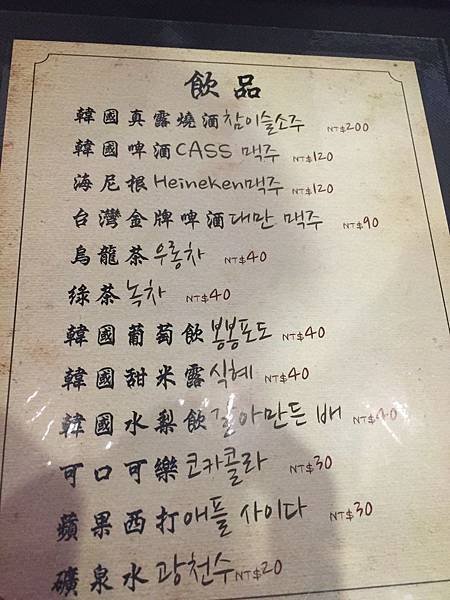 飲品
韓國真露燒酒참이슬소주 NT$200
韓國啤酒CASS 맥주 NT$120
海尼根Heineken맥주 NT$120
台灣金牌啤酒대만 맥주 NT$90
烏龍茶우롱차 NT$40
綠茶녹차 NT$40
韓國葡萄飲봉봉포도 NT$40
韓國甜米露식혜 NT$40
韓國水梨飲갈아만든 배 NT$40
可口可樂코카콜라 NT$30
蘋果西打애플 사이다 NT$30
礦泉水광천수 NT$20